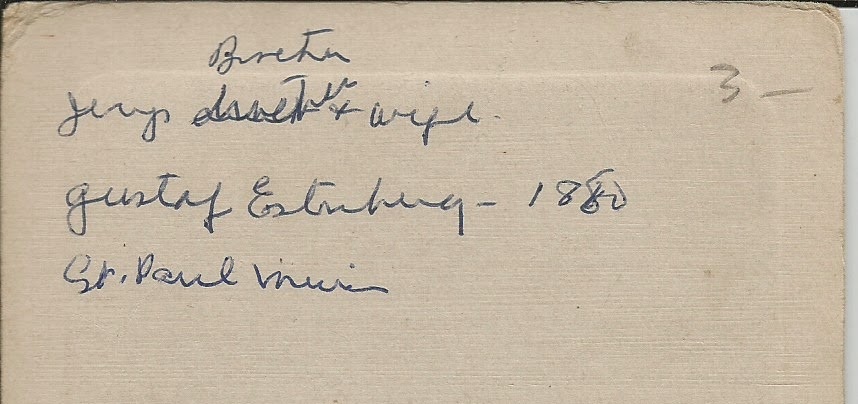 Brother
Jenys & wife.
3 —
Gustaf Estenberg - 1880
St. Paul Minn